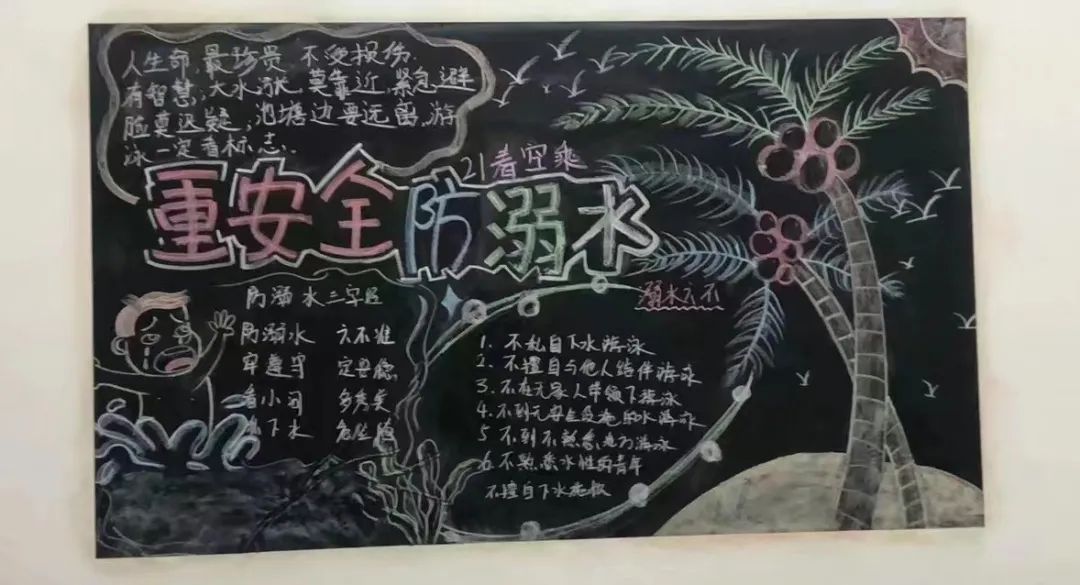 人生命,最珍贵,不受损伤.
有智慧;大水涨,莫靠近,紧急避
险莫迟疑;池塘边要远离,游
泳一定看标志.
21春空乘
重安全防溺水
防溺水三字经
防溺水 六不准
牢遵守 定要稳
看小河 多秀美
小下水 危
溺水六不
1. 不私自下水游泳
2. 不擅自与他人结伴游泳
3. 不在无家人带领下游泳
4. 不到无安全设施的水游泳
5 不到不熟悉地方游泳
6. 不熟悉水性的青年
不擅自下水施救